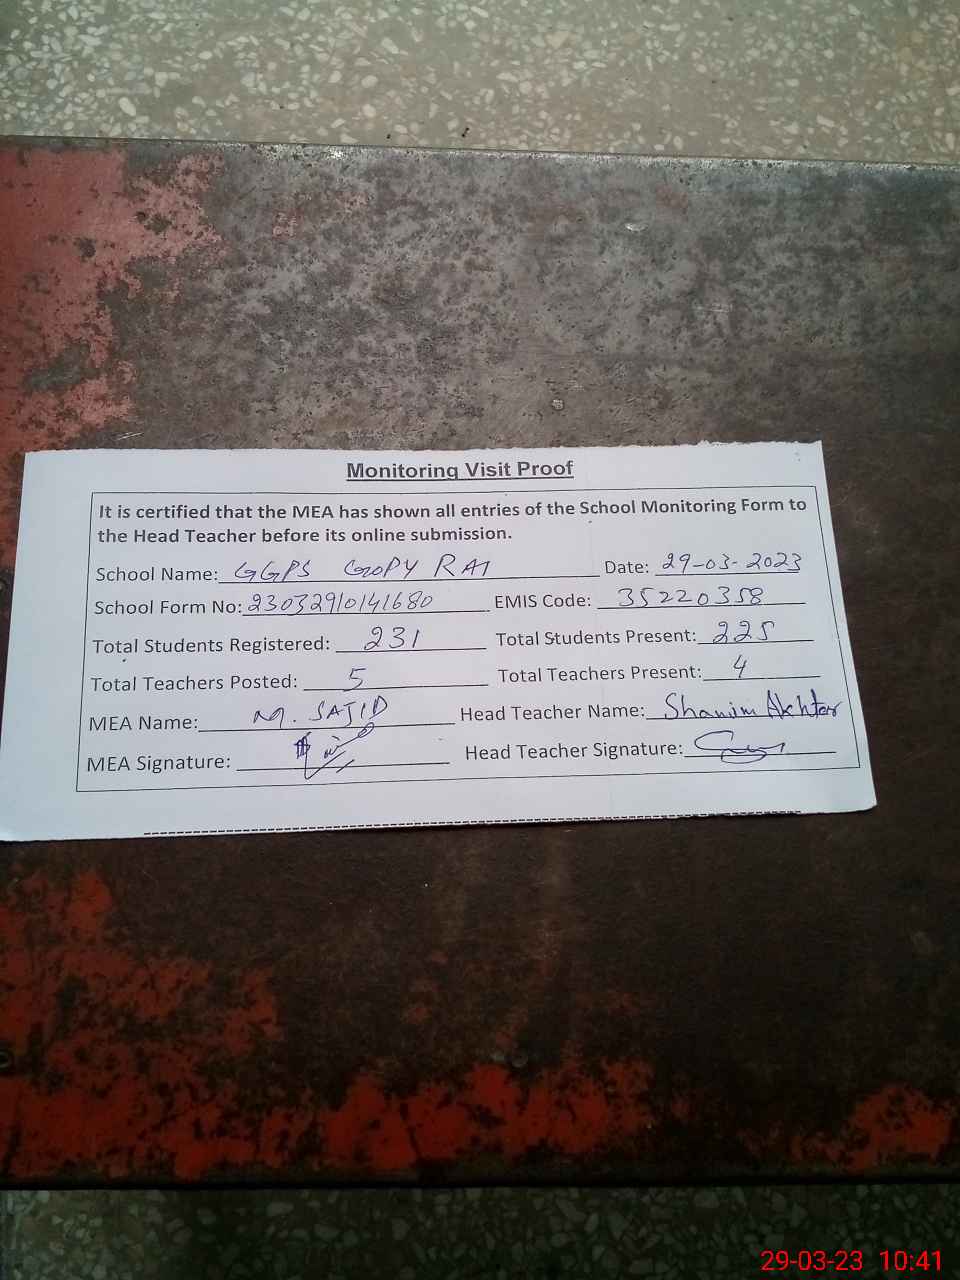 Monitoring Visit Proof
It is certified that the MEA has shown all entries of the School Monitoring Form to
the Head Teacher before its online submission.
School Name: GGPS GOPY RAI Date: 29-03-2023
School Form No: 23032910141680 EMIS Code: 35220358
Total Students Registered: 231 Total Students Present: 225
Total Teachers Posted: 5 Total Teachers Present: 4
MEA Name: M. SAJID Head Teacher Name: Shamim Akhtar
MEA Signature: Head Teacher Signature:
29-03-23 10:41